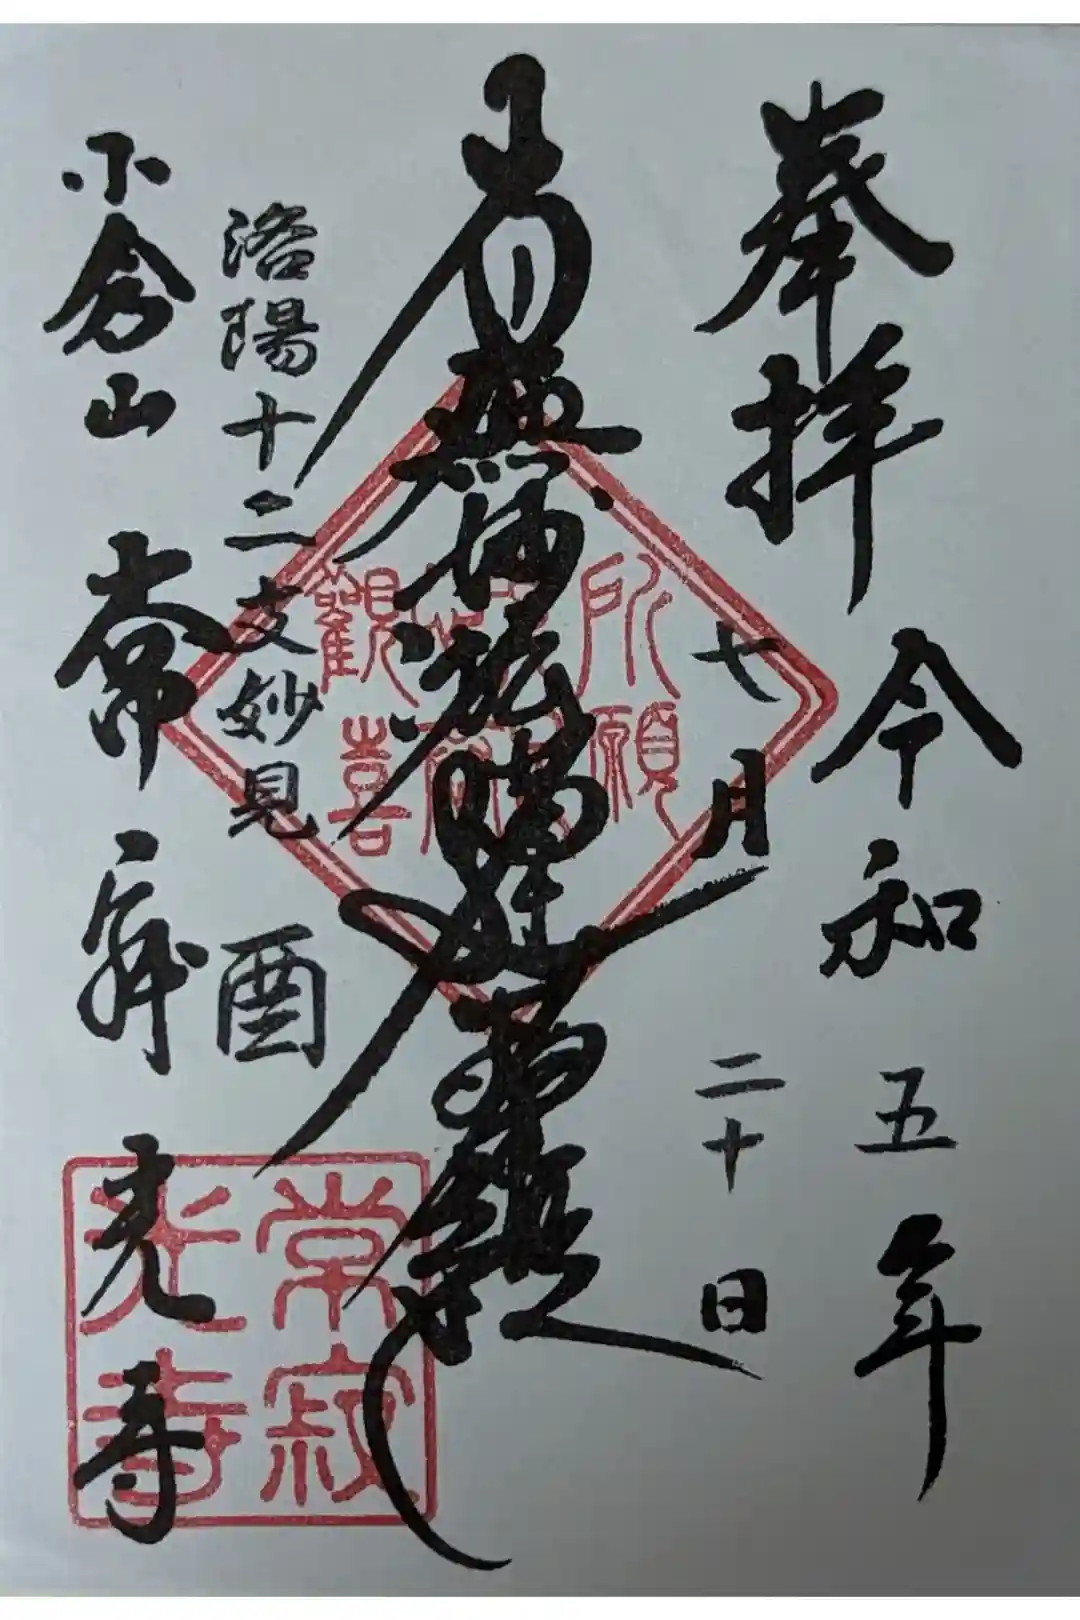 奉拝
令和五年
七月二十日
南無妙法蓮華經
洛陽十二支妙見 酉
小倉山 常寂光寺
所願
觀喜
常寂
光寺